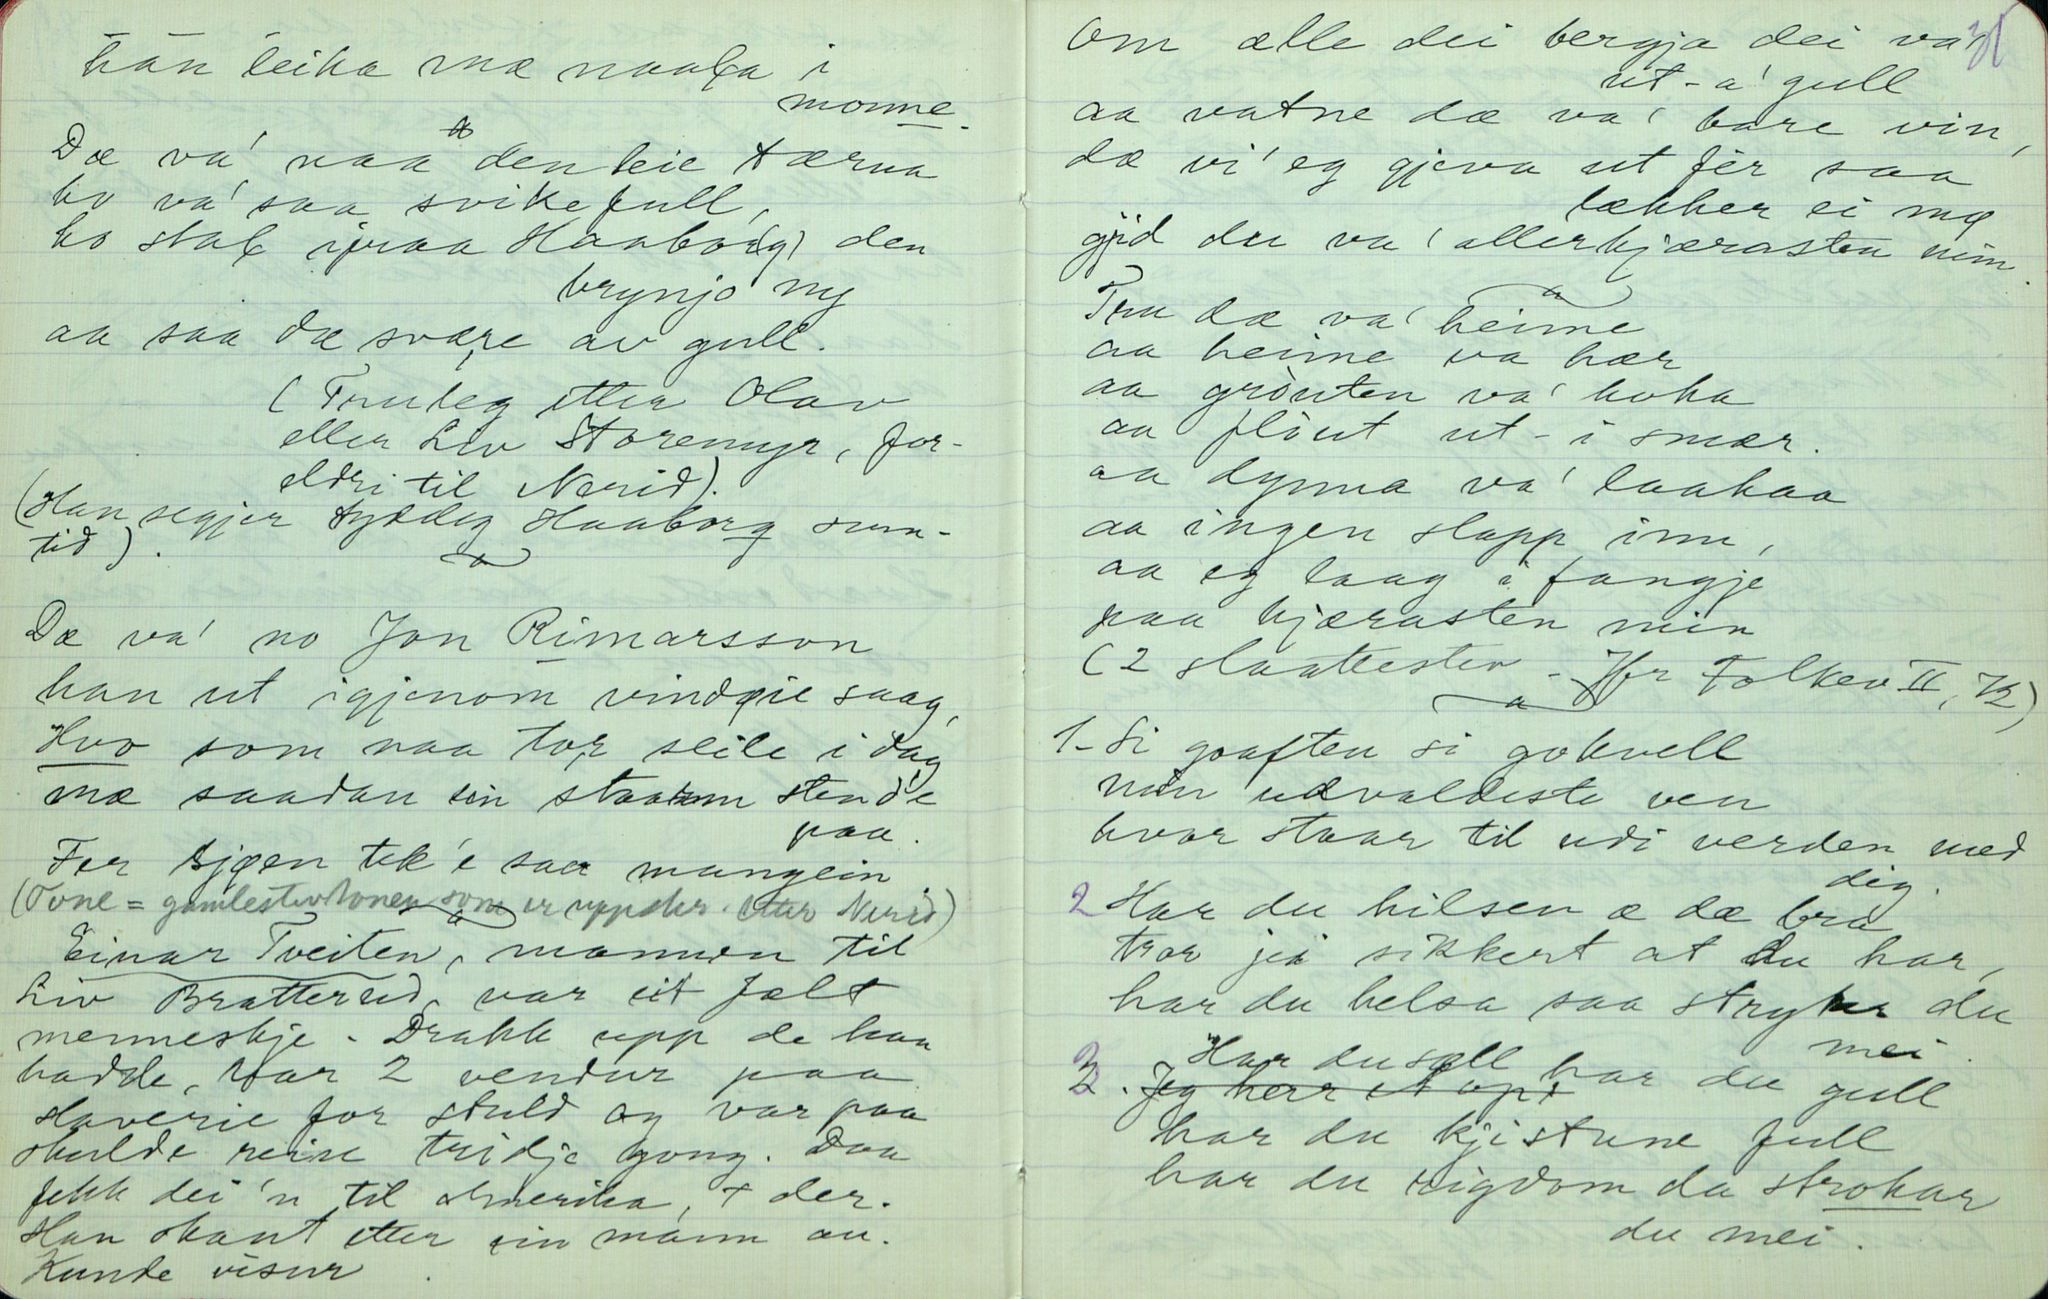 han leika mæ naala i
monne.
Dæ va' naa den leie tærna
ho va' saa svikefull,
ho stal ifraa Haabo(rg) den
brynjo ny
aa saa dæ svære av gull.
(Truleg etter Olav
eller Liv Storemyr, for-
eldri til Nerid).
(Han segjer tydeleg Haaborg sum-
tid).
Dæ va' no Jon Rimarsson
han ut igjenom vindauge saag,
Hvo som naa tor seile i dag
mæ saadan ein staarm stend'e
paa.
For sjøen tek'e saa mangein
(Tone = gamlestevtonen som er uppskr. etter Nerid)
Einar Tveiten, mannen til
Liv Bratterud, var eit fælt
menneskje. Drakk upp de han
hadde, var 2 vendur paa
slaverie for stuld og var paa
skulde reise tridje gong. Daa
fekk dei 'n til Amerika, + der.
Han skaut etter ein mann au.
Kunde visur.
Om alle dei bergja dei var
31
ut-a' gull
aa vatne dæ va' bare vin,
dæ vi' eg gjeva ut fer saa
lækker ei mø
gjid du va' allerkjærasten min.
Tru dæ va' heime
aa heime va hær
aa grauten va' koka
aa flaut ut-i smær.
aa dynna va' laakaa
aa ingen slapp inn,
aa eg laag i fangje
paa kjærasten min
(2 slaattestev - Jfr Folkev II, 72)
1- Si goaften si gokvell
min udvaldeste ven
hvor staar til udi verden med
dig.
2 Har du hilsen æ dæ bra
tror jei sikkert at du har,
har du helsa saa stryker du
mei.
3. Jeg herr
Har du søll har du gull
har du kjistune full
har du rigdom da strokar
du mei.